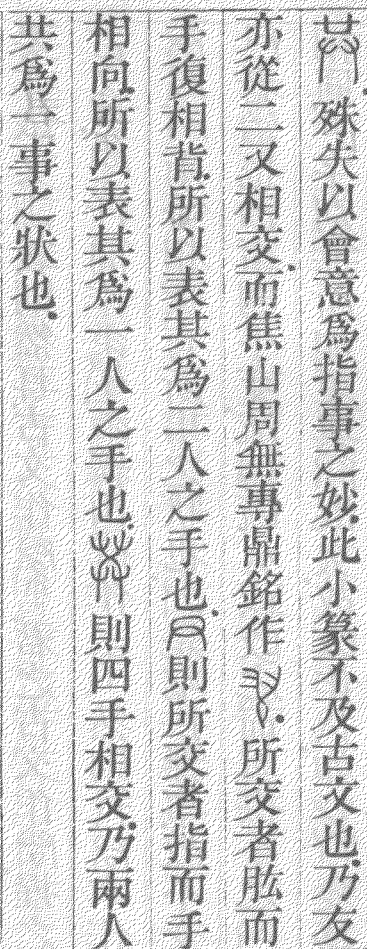 殊失以會意爲指事之妙此小篆不及古文也乃友
亦從二又相交而焦山周無專鼎銘作所交者肱而
手復相背所以表其爲二人之手也則所交者指而手
相向所以表其爲一人之手也則四手相交乃兩人
共爲一事之狀也